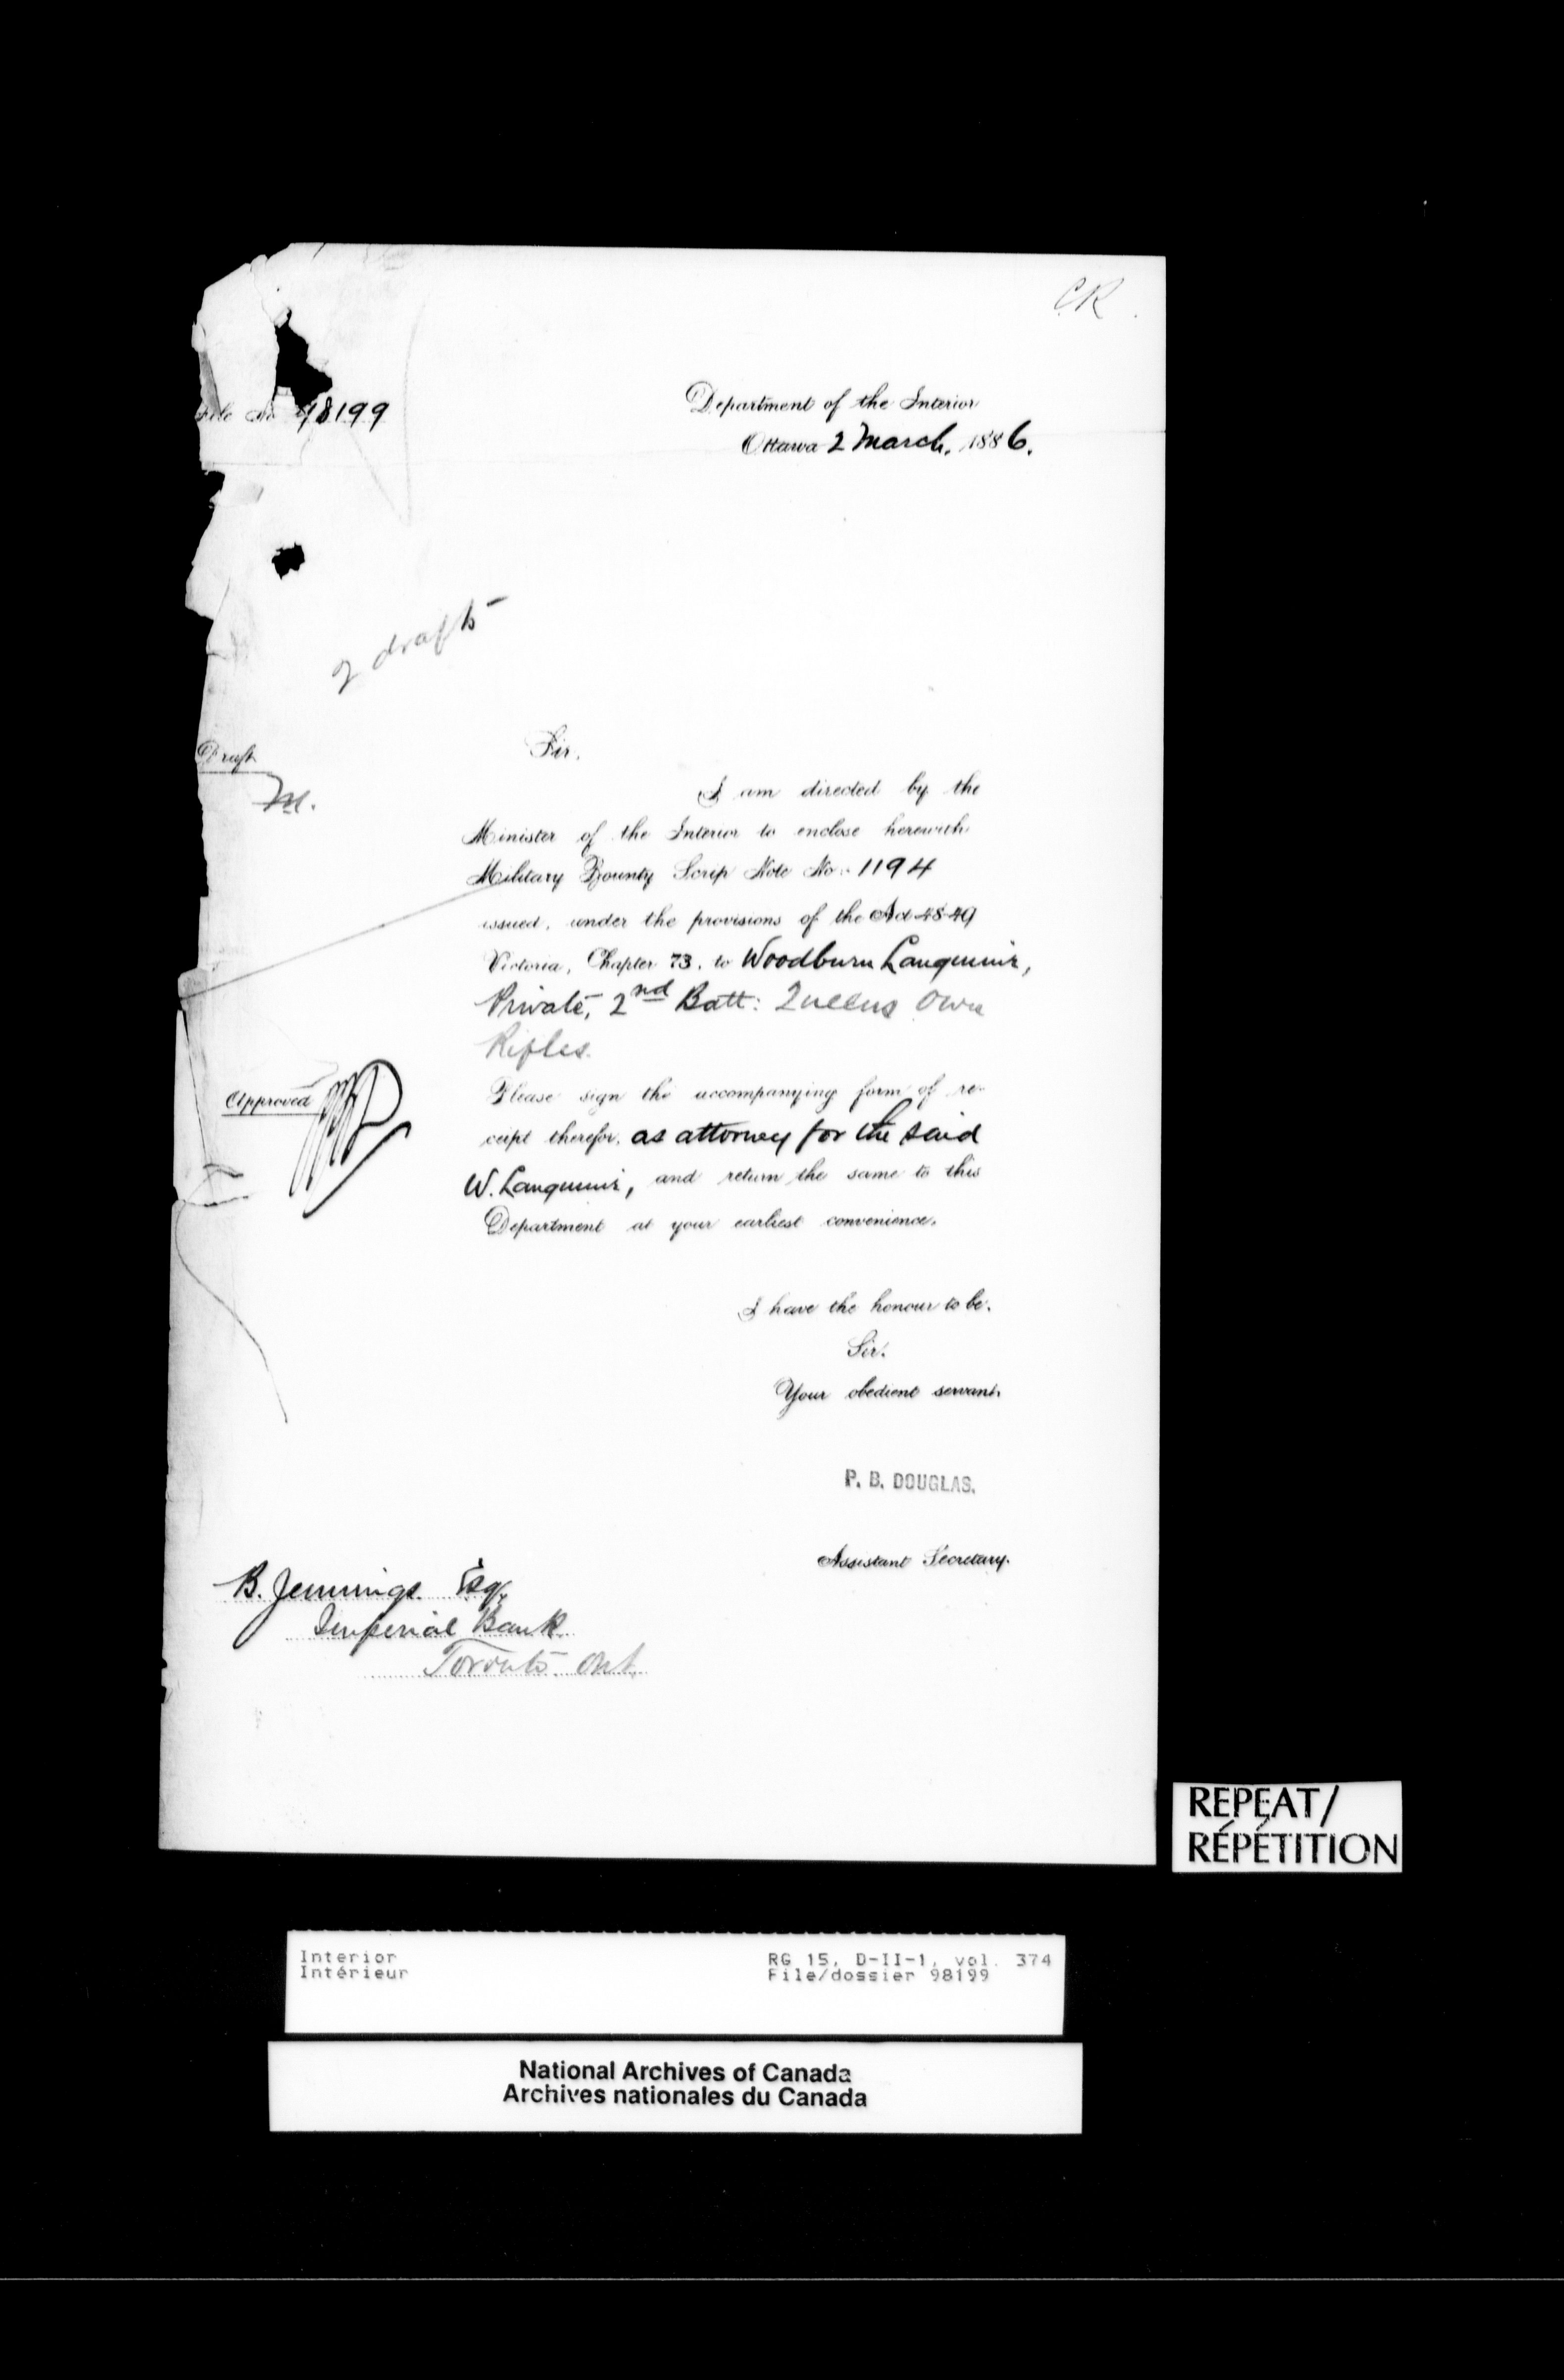 CR
File No 98199
Department of the Interior
Ottawa 2 March, 1886.
2 drafts
Draft
M.
Sir,
I am directed by the
Minister of the Interior to enclose herewith
Military Bounty Scrip Note No. 1194
issued, under the provisions of the Act 48-49
Victoria, Chapter 73, to Woodburn Langmuir,
Private, 2nd Batt: Queens Own
Rifles.
Approved
Please sign the accompanying form of re-
ceipt therefor, as attorney for the said
W. Langmuir, and return the same to this
Department at your earliest convenience.
I have the honour to be,
Sir,
Your obedient servant,
P. B. DOUGLAS.
Assistant Secretary.
B. Jennings Esq.
Imperial Bank
Toronto Ont.
REPEAT/
RÉPÉTITION
Interior RG 15, D-II-1, vol. 374
Intérieur File/dossier 98199
National Archives of Canada
Archives nationales du Canada